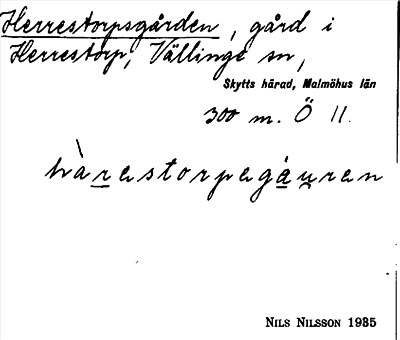 Herrestorpsgården, gård i
Herrestorp, Vällinge sn,
Skytts härad, Malmöhus län
300 m. Ö 11.
hàrestorpegáuren
NILS NILSSON 1935